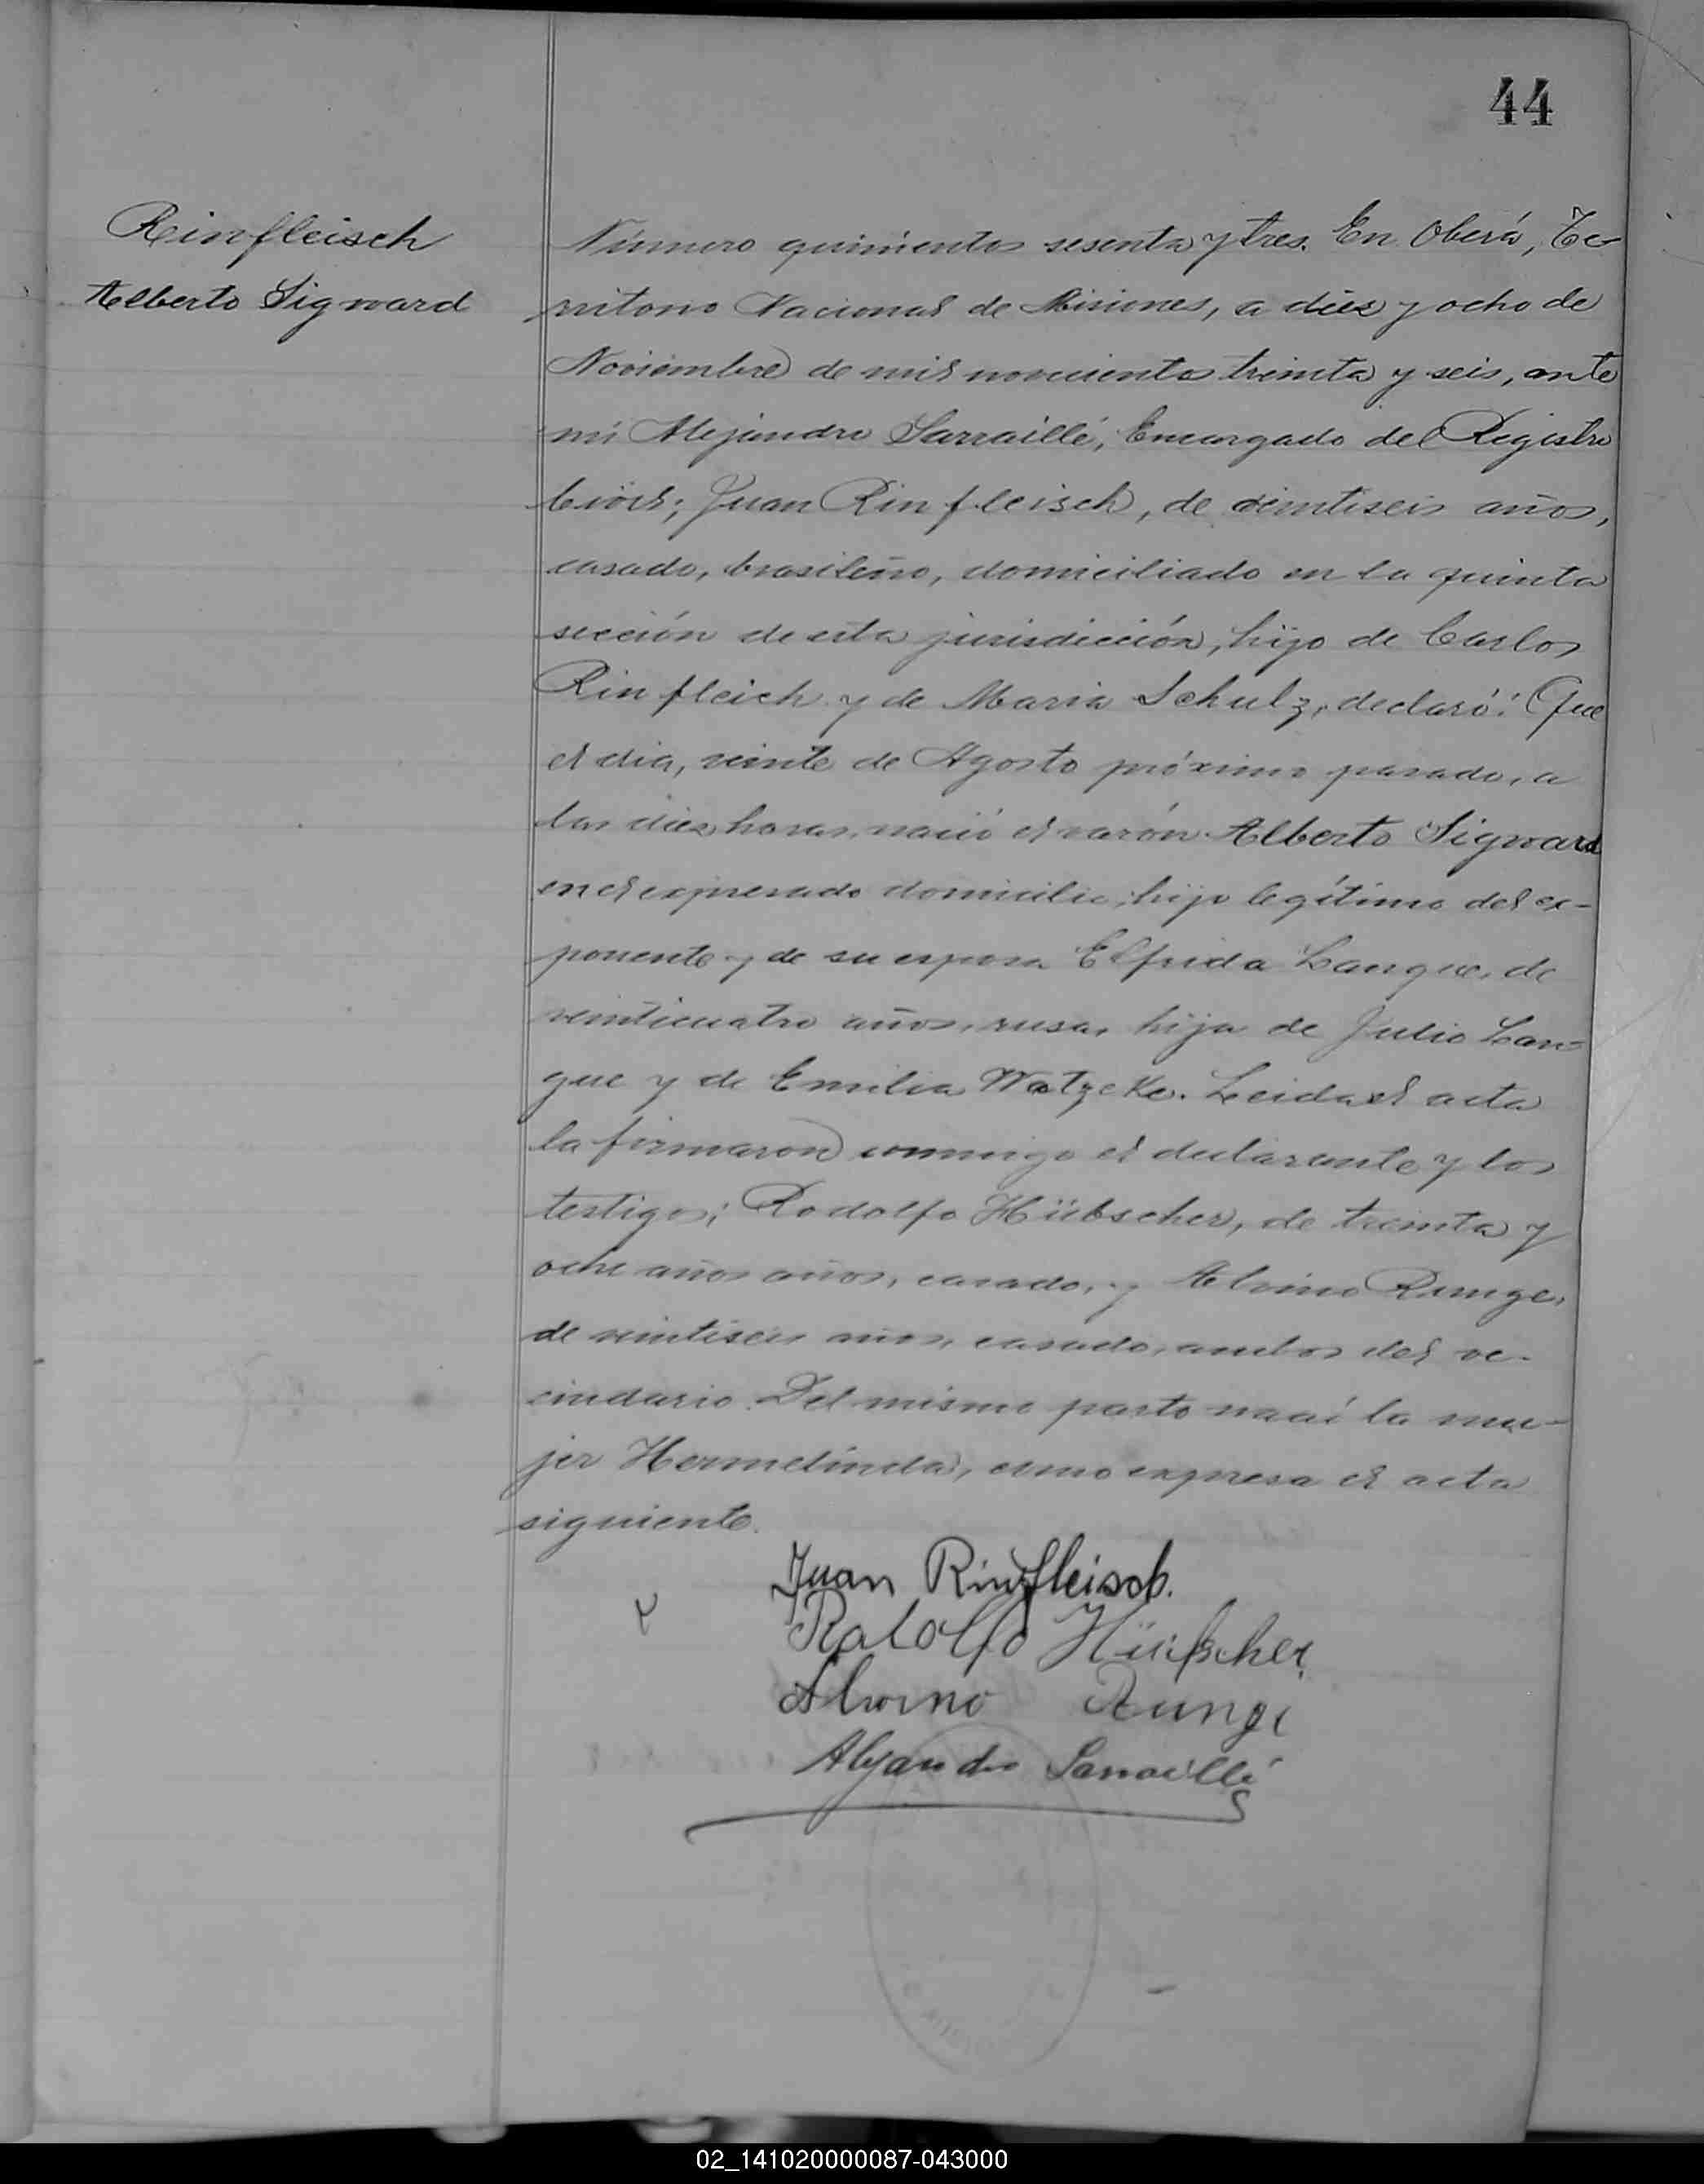 44
Reinfleisch
Alberto Sigward
Número quinientos sesenta y tres. En Oberá, Te-
rritorio Nacional de Misiones, a diez y ocho de
Noviembre de mil novecientos treinta y seis, ante
mi Alejandro Sarraillé, Encargado del Registro
Civil; Juan Rinfleisch, de veintiseis años,
casado, brasileño, domiciliado en la quinta
sección de esta jurisdicción, hijo de Carlos
Rinfleich y de Maria Schulz, declaró: Que
el dia, veinte de Agosto próximo pasado, a
las diez horas, nació el varón Alberto Sigward
en el expresado domicilio; hijo legítimo del ex-
ponente y de su esposa Elfrida Langue, de
veinticuatro años, rusa, hija de Julio Lan-
gue y de Emilia Watzeke. Leida el acta
la firmaron conmigo el declarante y los
testigos; Rodolfo Hübscher, de treinta y
ocho años años, casado, y Alvino Runge,
de veintiseis años, casado, ambos del ve-
cindario. Del mismo parto nací la mu-
jer Hermelinda, como expresa el acta
siguiente.
Juan Rinfleisch.
Rodolfo Hübscher
Alvino Runge
Alejandro Sarraillé
02_141020000087-043000